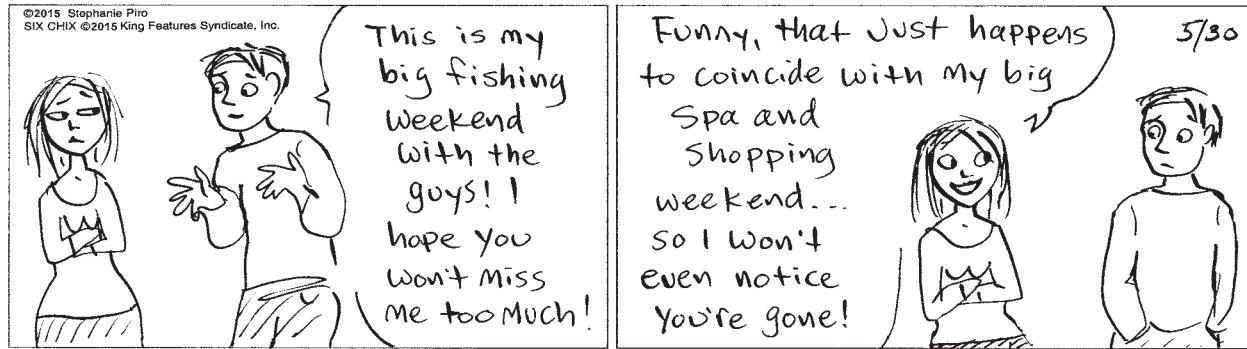 ©2015 Stephanie Piro
SIX CHIX ©2015 King Features Syndicate, Inc.
This is my
big fishing
weekend
with the
guys! I
hope you
won't miss
me too much!
Funny, that just happens
to coincide with my big
spa and
shopping
weekend...
so I won't
even notice
you're gone!
5/30